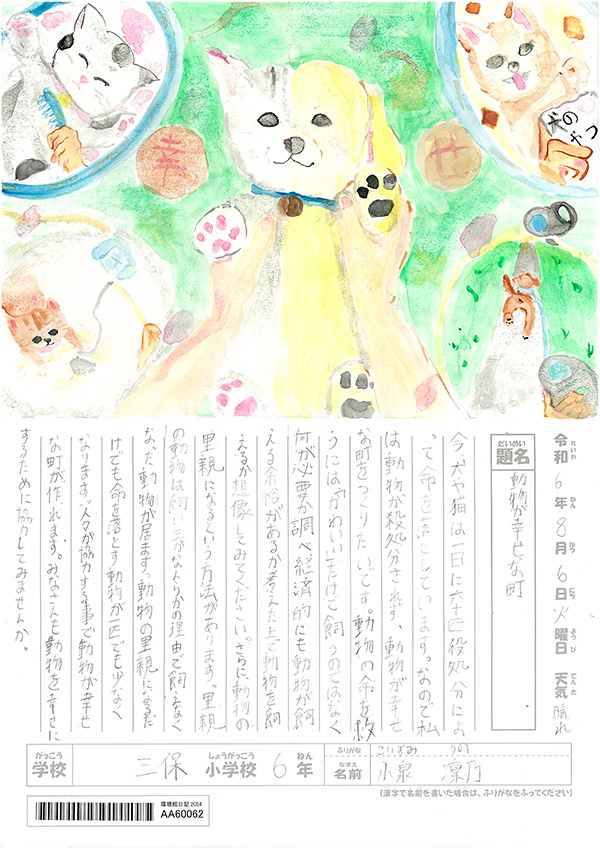 幸
せ
犬のおやつ
令和6年8月6日火曜日 天気 晴れ
れいわ ねん がつ にち ようび てんき
だいめい
題名
動物が幸せな町
今、犬や猫は一日に六十匹殺処分によ
って命を落としています。なので私
は動物が殺処分されず、動物が幸せ
な町をつくりたいです。動物の命を救
うには「かわいい」だけで飼うのではなく
何が必要か調べ経済的にも動物が飼
える余裕があるか考えた上で動物を飼
えるか想像してみてください。さらに、動物の
里親になるという方法があります。里親
の動物は飼い主がなんらかの理由で飼えなく
なった動物が居ます。動物の里親になるだ
けでも命を落とす動物が一匹でも少なく
なります。人々が協力する事で動物が幸せ
な町が作れます。みなさんも動物を幸せに
するために協力してみませんか。
がっこう しょうがっこう ねん
学校 三保 小学校 6年
ふりがな こいずみ りの
なまえ
名前 小泉 凜乃
(漢字で名前を書いた場合は、ふりがなをふってください)
環境絵日記2024
AA60062